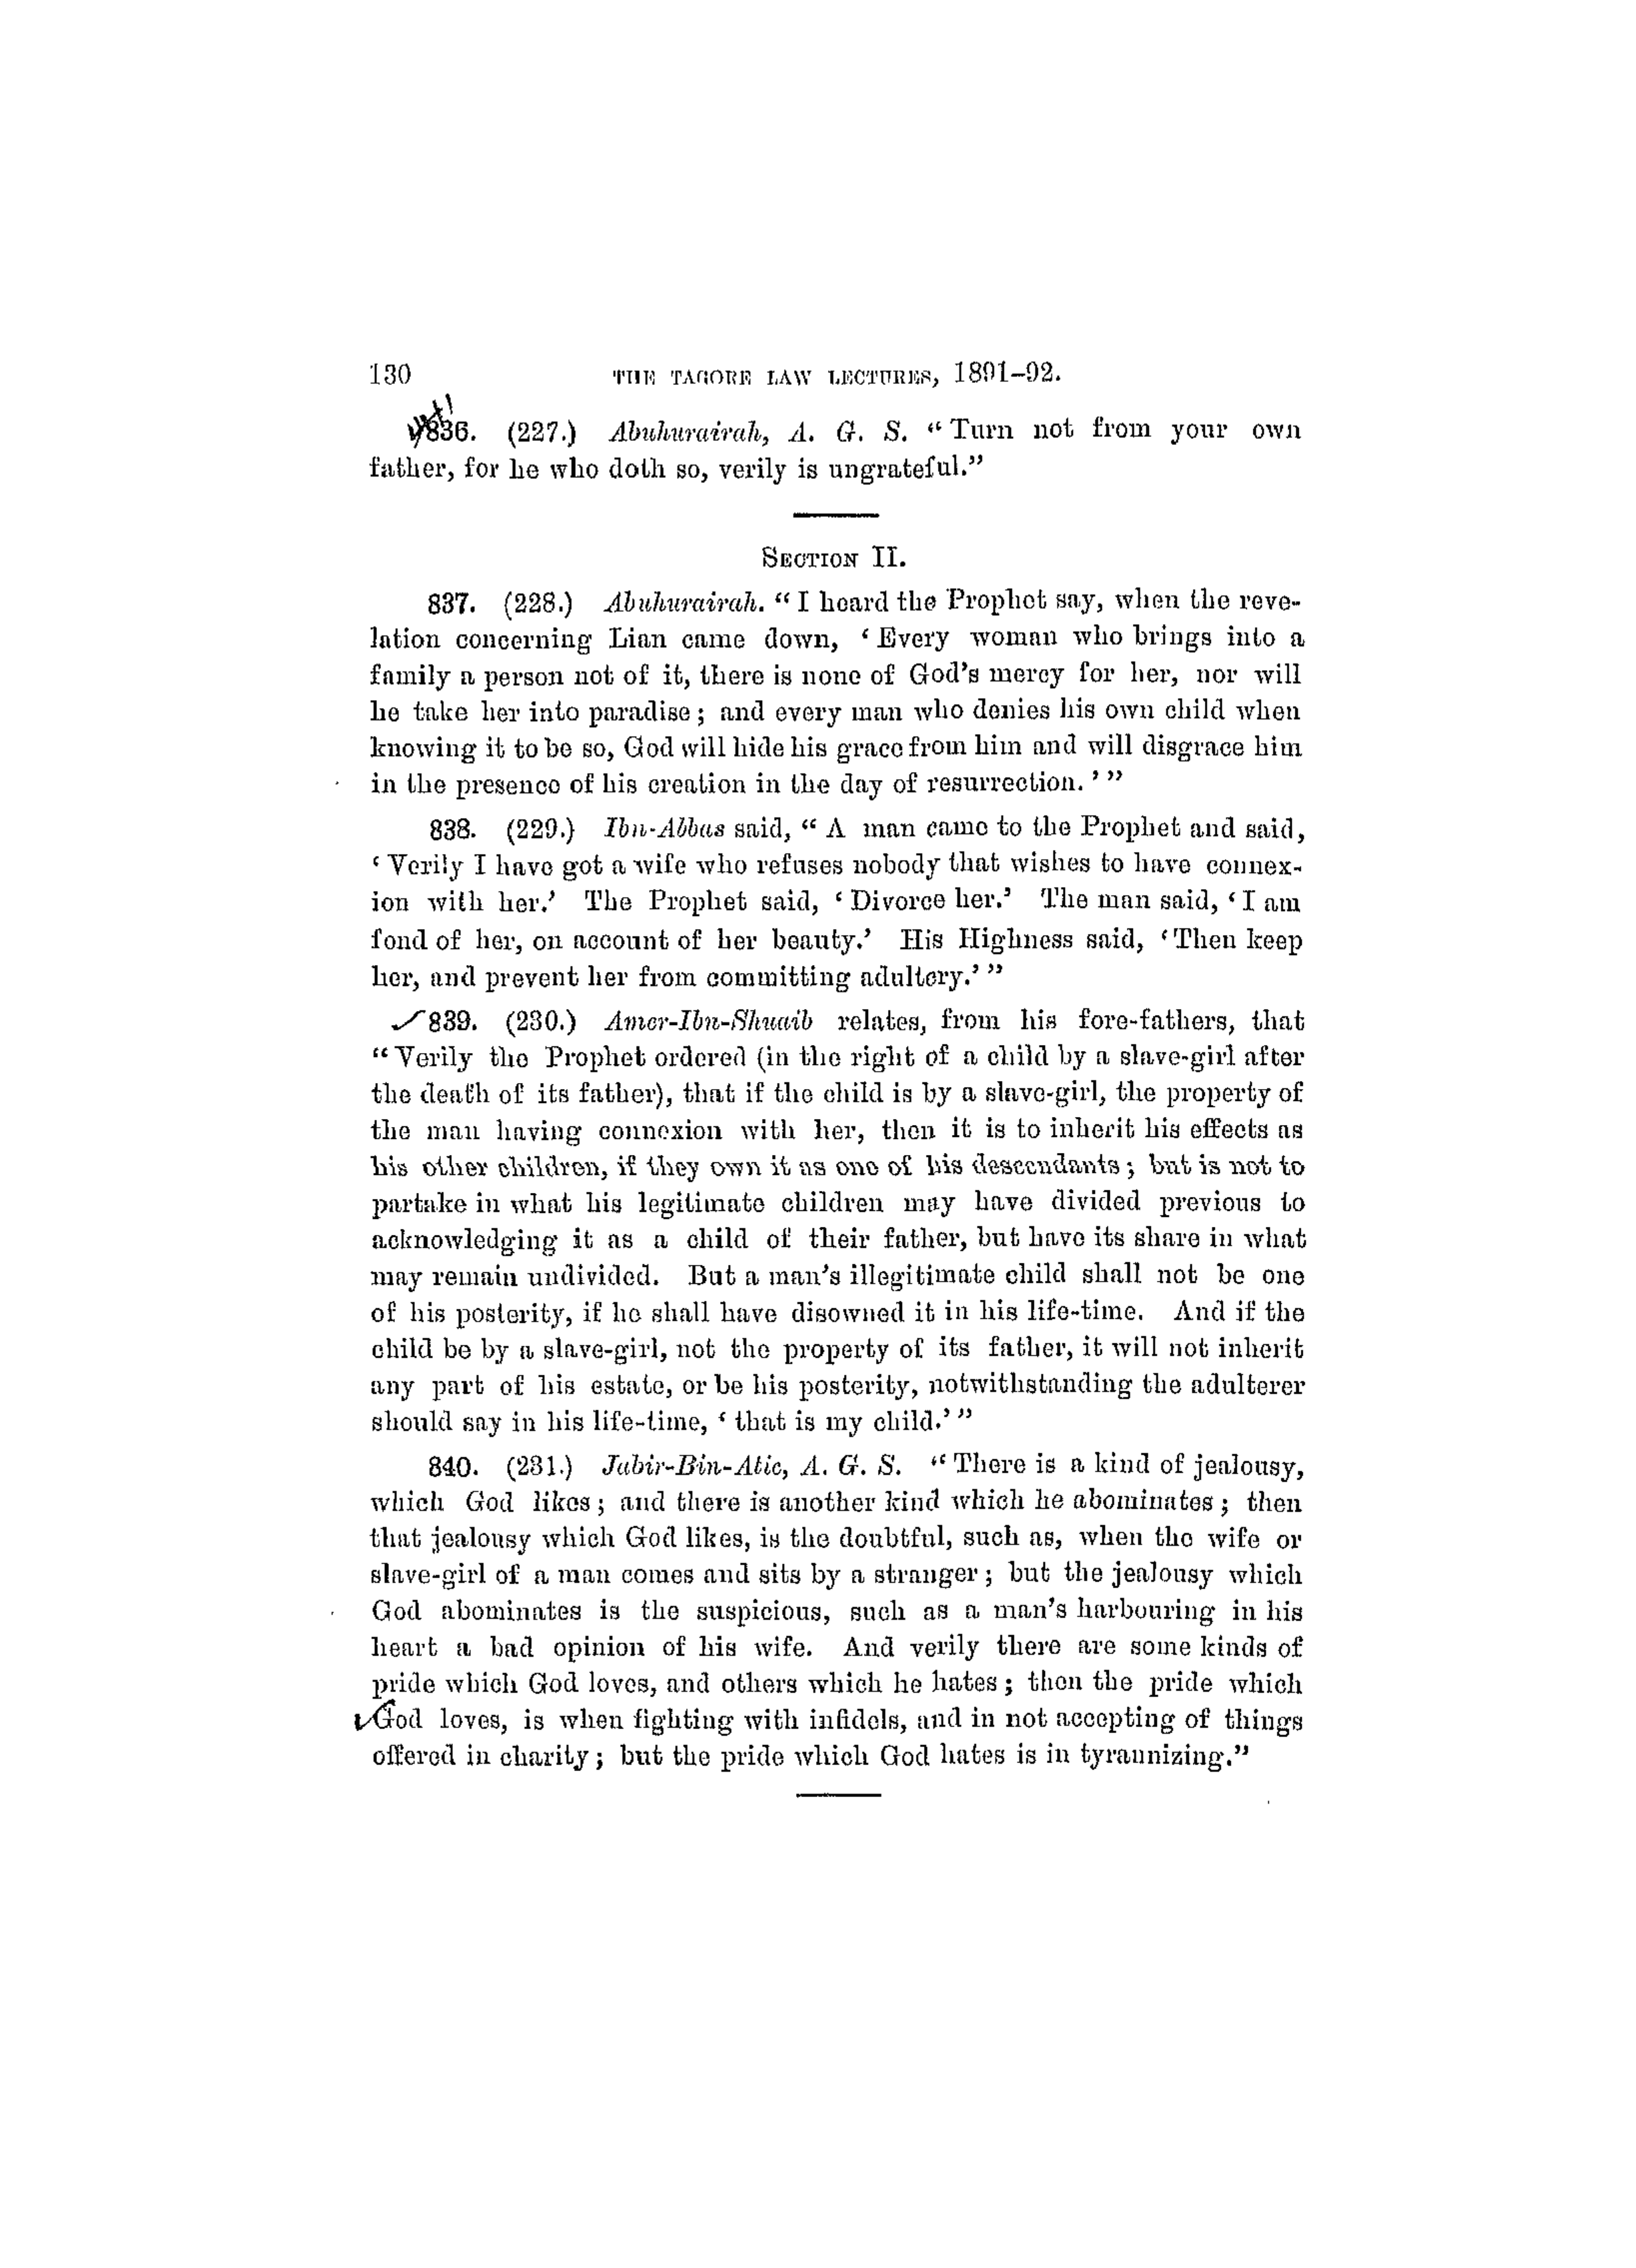 130 THE TAGORE LAW LECTURES, 1891–92.
836. (227.) Abuhurairah, A. G. S. “Turn not from your own
father, for he who doth so, verily is ungrateful.”
SECTION II.
837. (228.) Abuhurairah. “I heard the Prophet say, when the reve-
lation concerning Lian came down, ‘Every woman who brings into a
family a person not of it, there is none of God’s mercy for her, nor will
he take her into paradise; and every man who denies his own child when
knowing it to be so, God will hide his grace from him and will disgrace him
in the presence of his creation in the day of resurrection.’”
838. (229.) Ibn-Abbas said, “A man came to the Prophet and said,
‘Verily I have got a wife who refuses nobody that wishes to have connex-
ion with her.’ The Prophet said, ‘Divorce her.’ The man said, ‘I am
fond of her, on account of her beauty.’ His Highness said, ‘Then keep
her, and prevent her from committing adultery.’”
839. (230.) Amer-Ibn-Shuaib relates, from his fore-fathers, that
“Verily the Prophet ordered (in the right of a child by a slave-girl after
the death of its father), that if the child is by a slave-girl, the property of
the man having connexion with her, then it is to inherit his effects as
his other children, if they own it as one of his descendants; but is not to
partake in what his legitimate children may have divided previous to
acknowledging it as a child of their father, but have its share in what
may remain undivided. But a man’s illegitimate child shall not be one
of his posterity, if he shall have disowned it in his life-time. And if the
child be by a slave-girl, not the property of its father, it will not inherit
any part of his estate, or be his posterity, notwithstanding the adulterer
should say in his life-time, ‘that is my child.’”
840. (231.) Jabir-Bin-Atic, A. G. S. “There is a kind of jealousy,
which God likes; and there is another kind which he abominates; then
that jealousy which God likes, is the doubtful, such as, when the wife or
slave-girl of a man comes and sits by a stranger; but the jealousy which
God abominates is the suspicious, such as a man’s harbouring in his
heart a bad opinion of his wife. And verily there are some kinds of
pride which God loves, and others which he hates; then the pride which
God loves, is when fighting with infidels, and in not accepting of things
offered in charity; but the pride which God hates is in tyrannizing.”